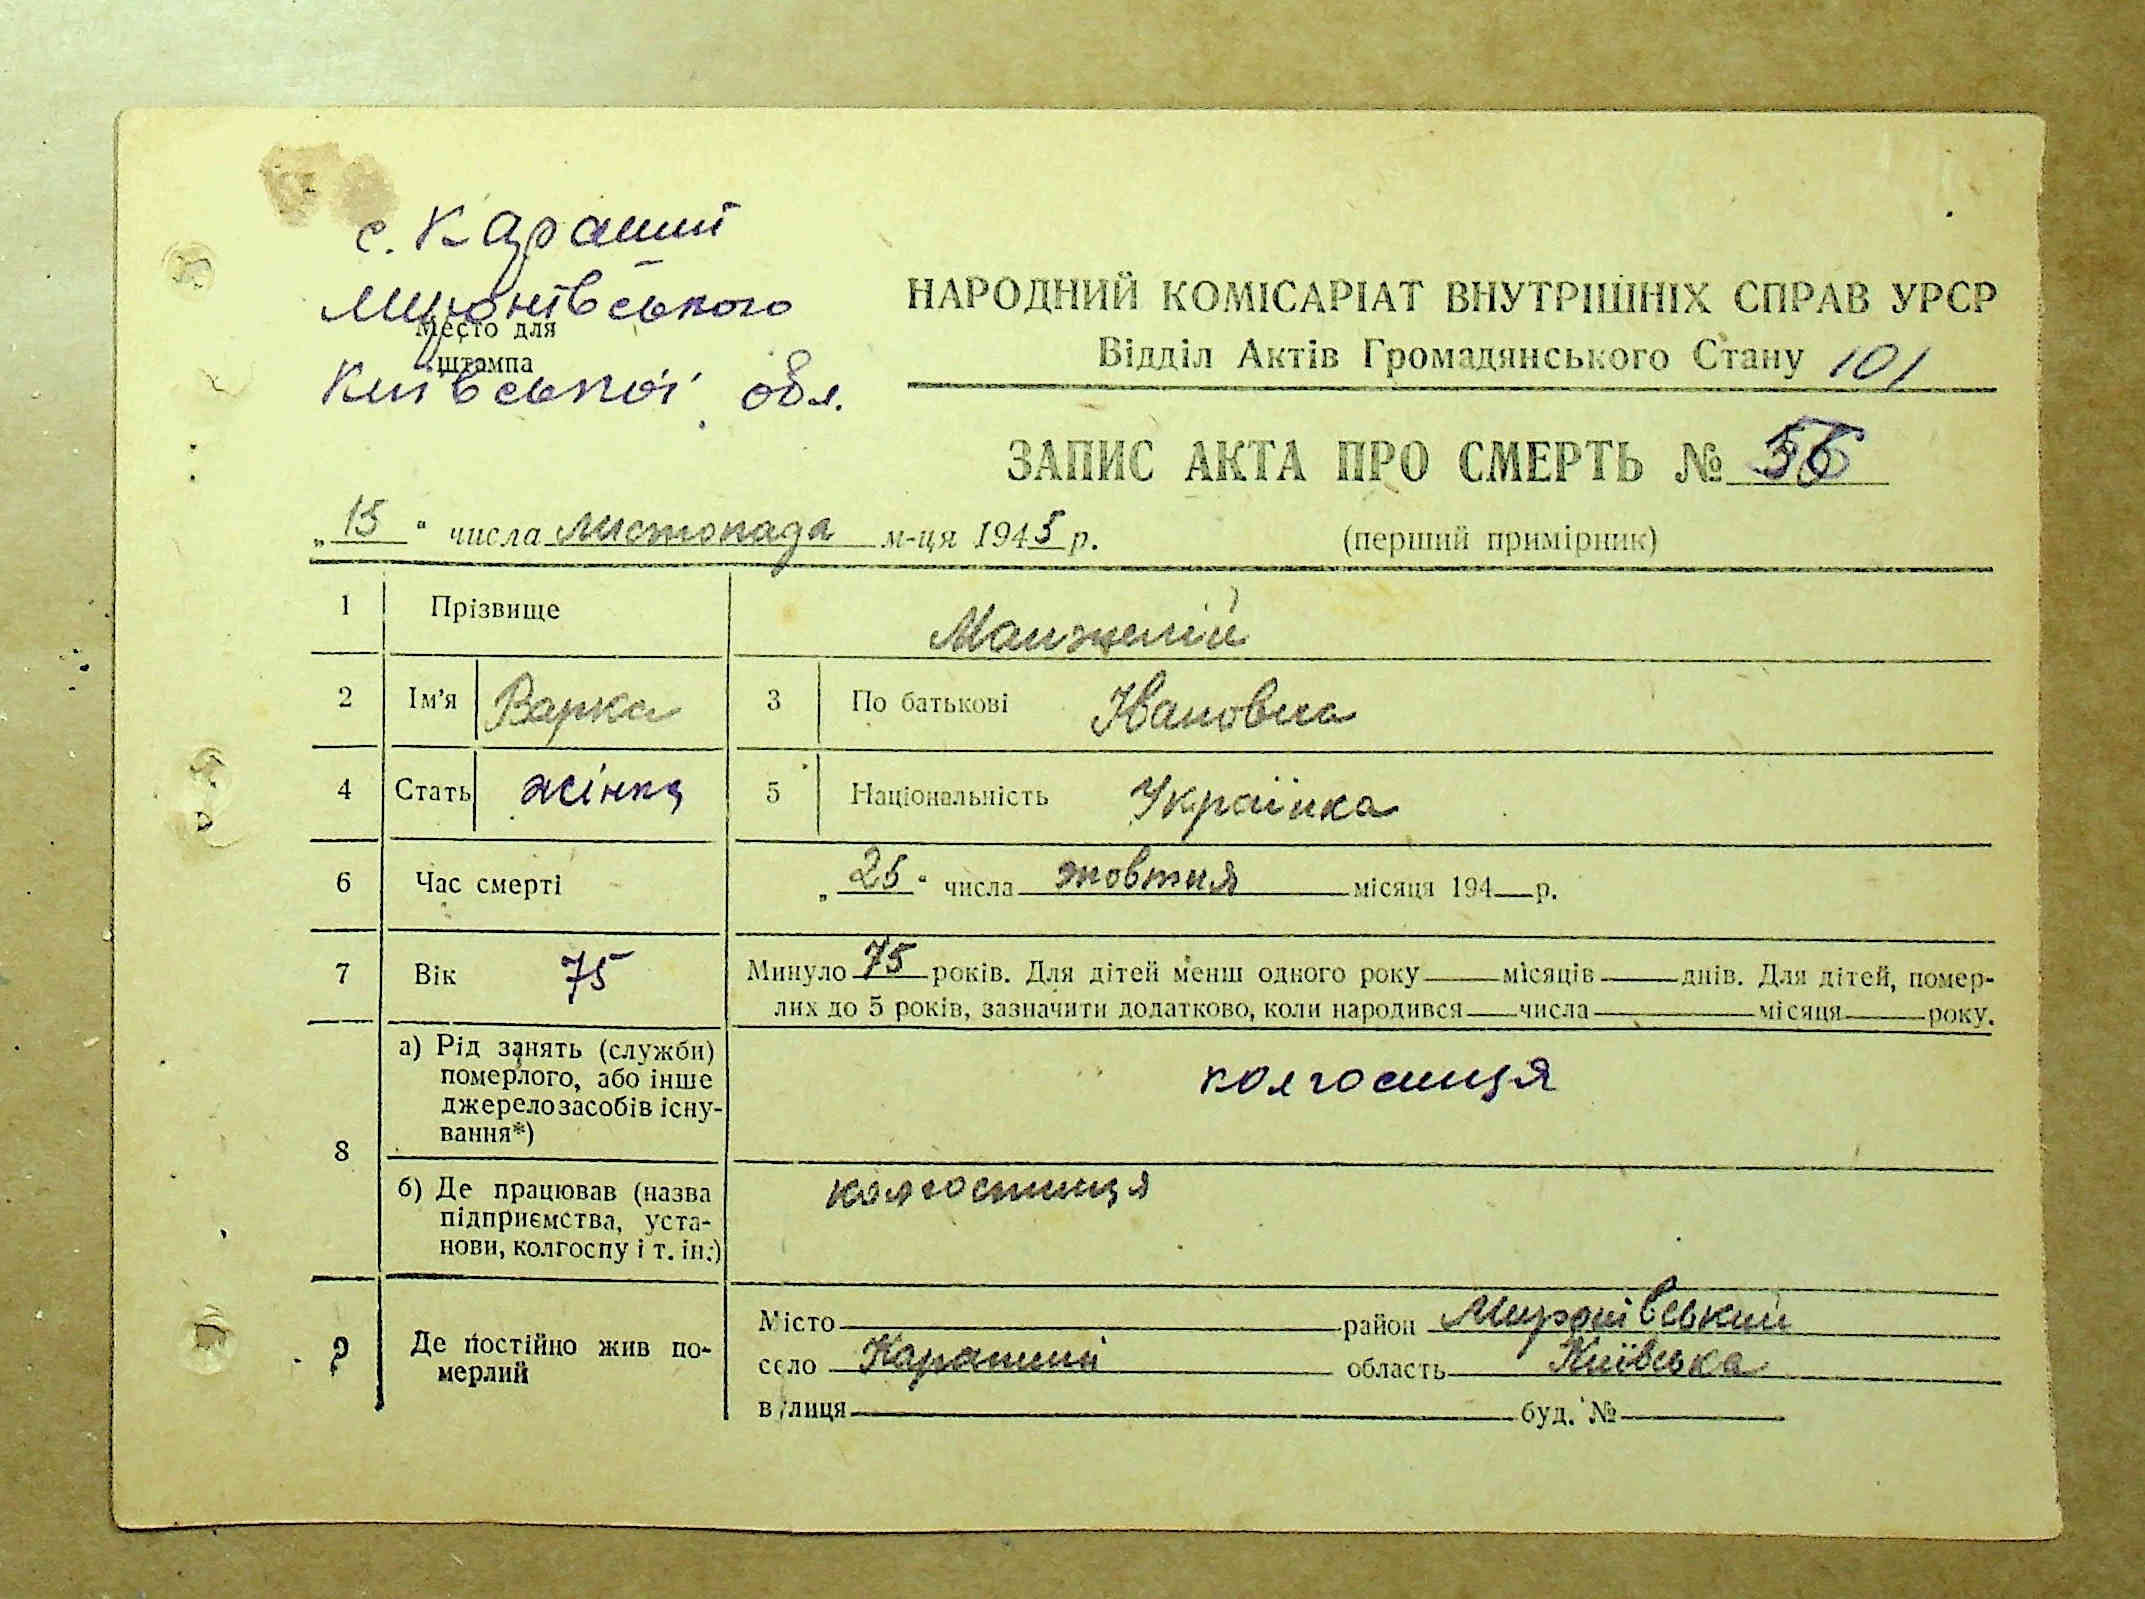 с. Карапиші
Миронівського
Место для
штампа
Київської обл.
НАРОДНИЙ КОМІСАРІАТ ВНУТРІШНІХ СПРАВ УРСР
Відділ Актів Громадянського Стану 101
ЗАПИС АКТА ПРО СМЕРТЬ №
„15“ числа листопада м-ця 1945 р. (перший примірник)
1 Прізвище Манжелій
2 Ім'я Варка 3 По батькові Івановна
4 Стать жінка 5 Національність Українка
6 Час смерті „25“ числа жовтня місяця 194 р.
7 Вік 75 Минуло 75 років. Для дітей менш одного року місяців днів. Для дітей, помер-
лих до 5 років, зазначити додатково, коли народився числа місяця року.
8 а) Рід занять (служби)
померлого, або інше
джерело засобів існу-
вання*)
колгоспиця
б) Де працював (назва
підприємства, уста-
нови, колгоспу і т. ін.)
колгоспниця
9 Де постійно жив по-
мерлий
Місто район Миронівський
село Карапиші область Київська
вулиця буд. №